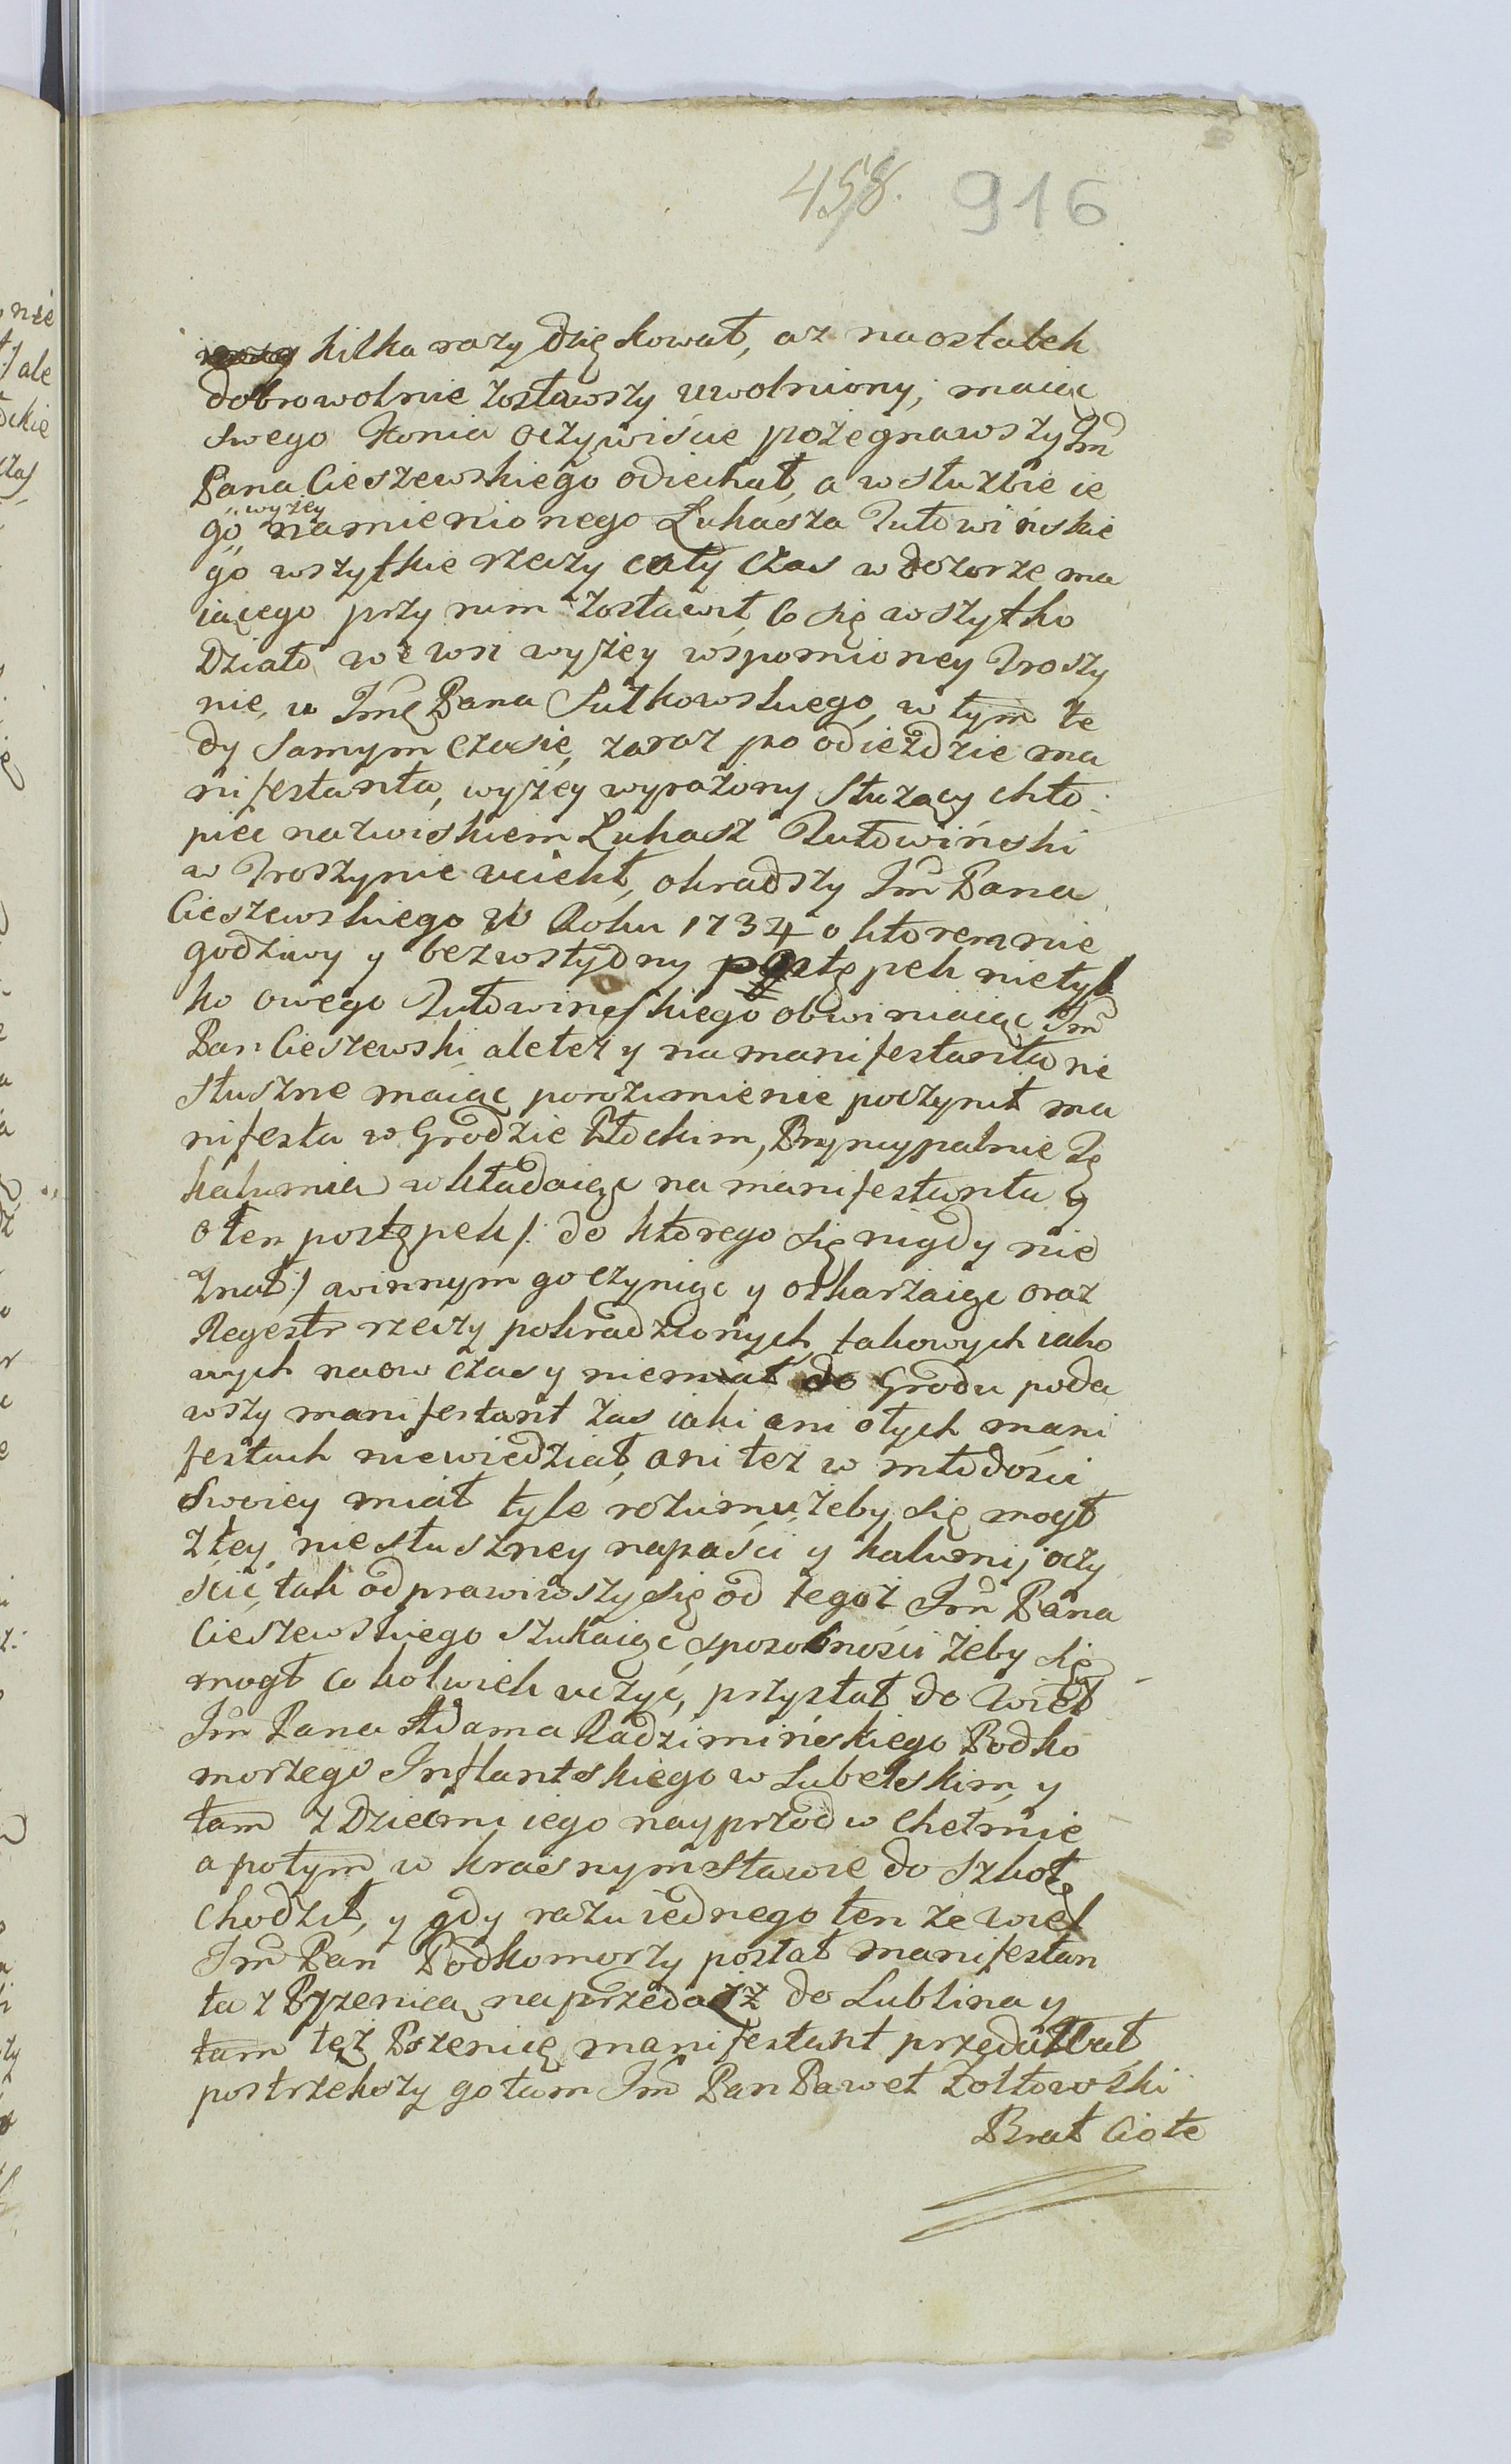 458. 916
kilka razy dziękował, az naostatek
dobrowolnie zostawszy uwolniony, maiąc
swego konia oczywiście pożegnawszy Jmci
Pana Cieszewskiego odiechał, a w służbie ie
go wyżey namienionego Łukasza Tułowińskie
go wszytkie rzeczy cały czas w dozorze ma
iącego przy nim zostawił, co się wszytko
działo we wsi wyżey wspomioney Troszy
nie, u Jmć Pana Sutkowskiego, w tym te
dy samym czasie, zaraz po odieździe ma
nifestanta, wyżey wyrażony służący chło
piec nazwiskiem Łukasz Tułowiński
w Troszynie uciekł, okradszy Jmci Pana
Cieszewskiego w Roku 1734 o ktorem nie
godziwy y bezwstydny postępek nietyl
ko owego Tułowinskiego obwiniaiąc Jmć
Pan Cieszewski, ale też y na manifestanta nie
słuszne maiąc porozumienie poczynił ma
nifesta w Grodzie Płockim, Pryncypalnie Tę
kalumnią wkładaiąc na manifestanta y
o ten postępek /: do ktorego się nigdy nie
znał :/ winnym go czyniąc y oskarżaiąc oraz
Regestr rzeczy pokradzionych, takowych iako
wych naowczas y niemiał do Grodu poda
wszy manifestant zas iaki ani o tych mani
festach niewiedział, ani też w młodości
swoiey miał tyle rozumu, żeby się mogł
z tey niesłuszney napaści y kalumnij oczy
ścić, tak odprawiwszy się od tegoż Jmć Pana
Cieszewskiego szukaiąc sposobności żeby się
mogł cokolwiek uczyć, przystał do Wiel
Jmć Pana Adama Radzimińskiego Podko
morzego Inflantskiego w Lubelskim, y
tam z dziećmi iego nayprzod w Chełmie
a potym w Krasnymstawie do szkoł
chodził, y gdy razu iednego tenże Wiel
Jmć Pan Podkomorzy posłał manifestan
ta z Pszenicą na przedaż do Lublina y
tam też Pszenicę manifestant przedawał
postrzekszy go tam Jmć Pan Paweł Żołtowski
Brat Ciote